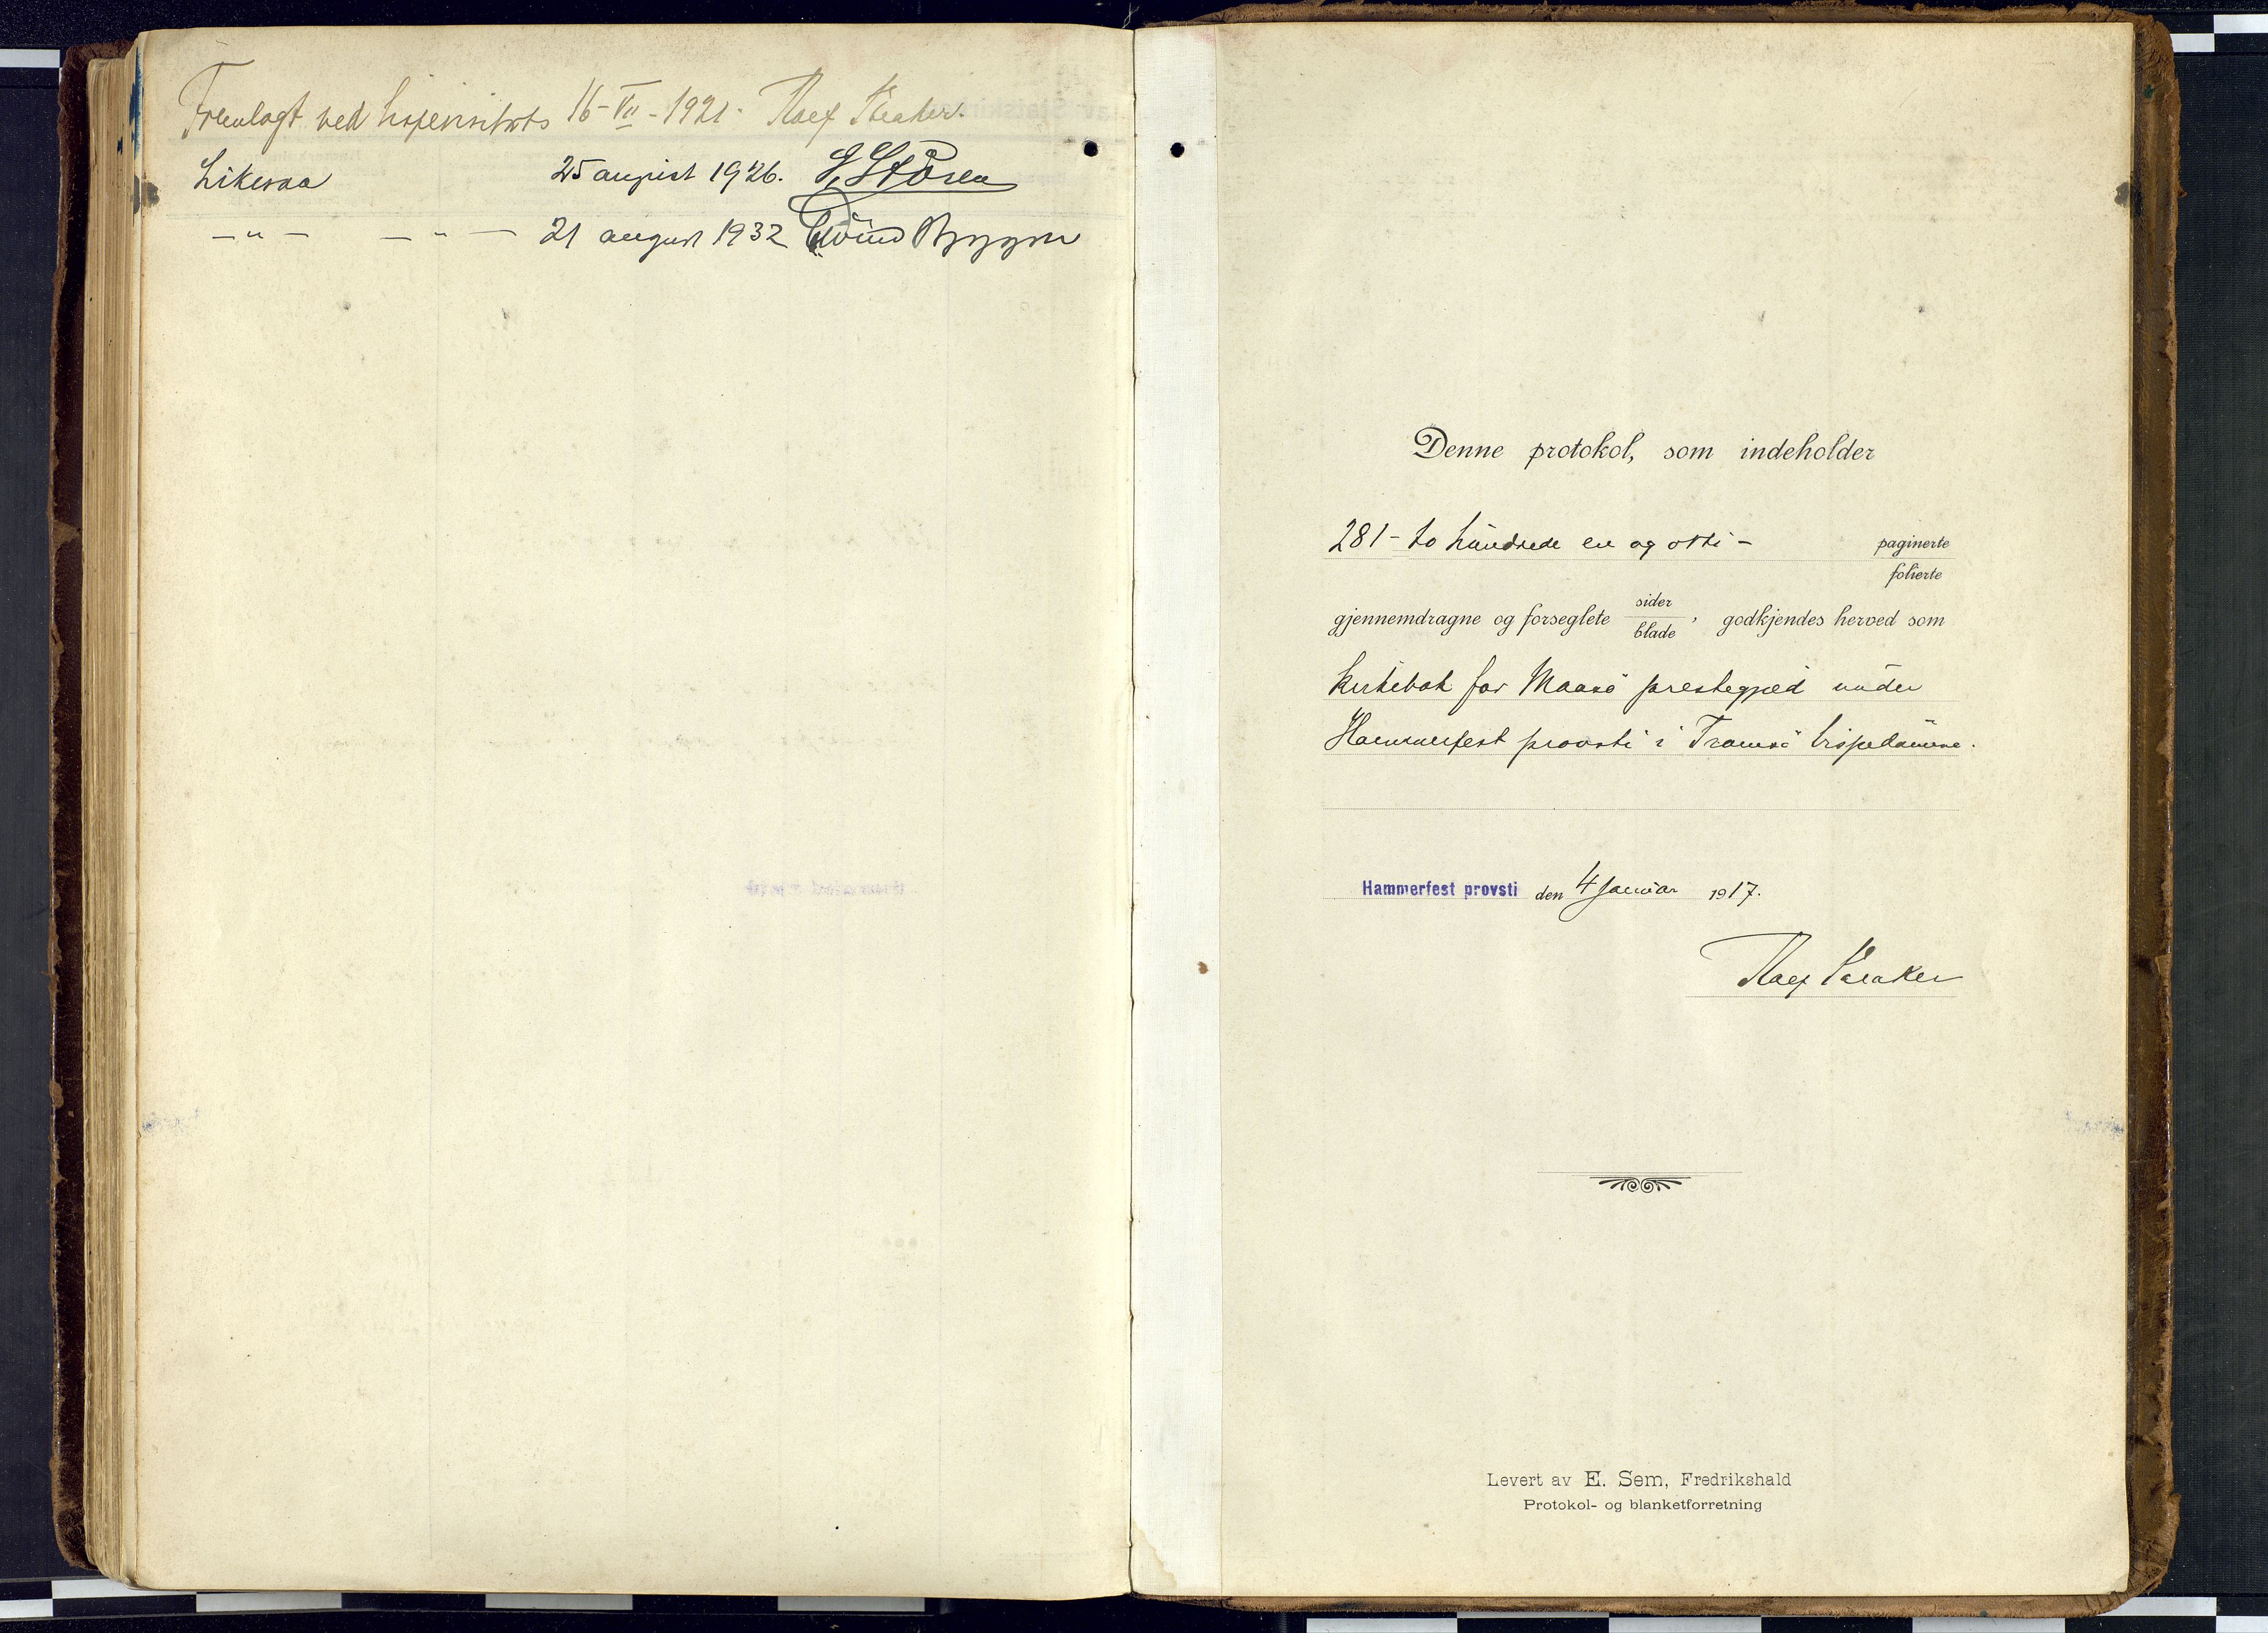 Fremlagt ved bispevisitats 16-VII-1921.
Likesaa 25 august 1926. Støren
— " — — " — 21 august 1932 Eivind Berggrav
Denne protokol, som indeholder
281- to hundrede en og otti -
paginerte
folierte
gjennemdragne og forseglete sider
blade, godkjendes herved som
kirkebok for Maasö prestegjeld under
Hammerfest provsti i Tromsö bispedömme.
Hammerfest provsti den 4 januar 1917.
Levert av E. Sem, Fredrikshald
Protokol- og blanketforretning